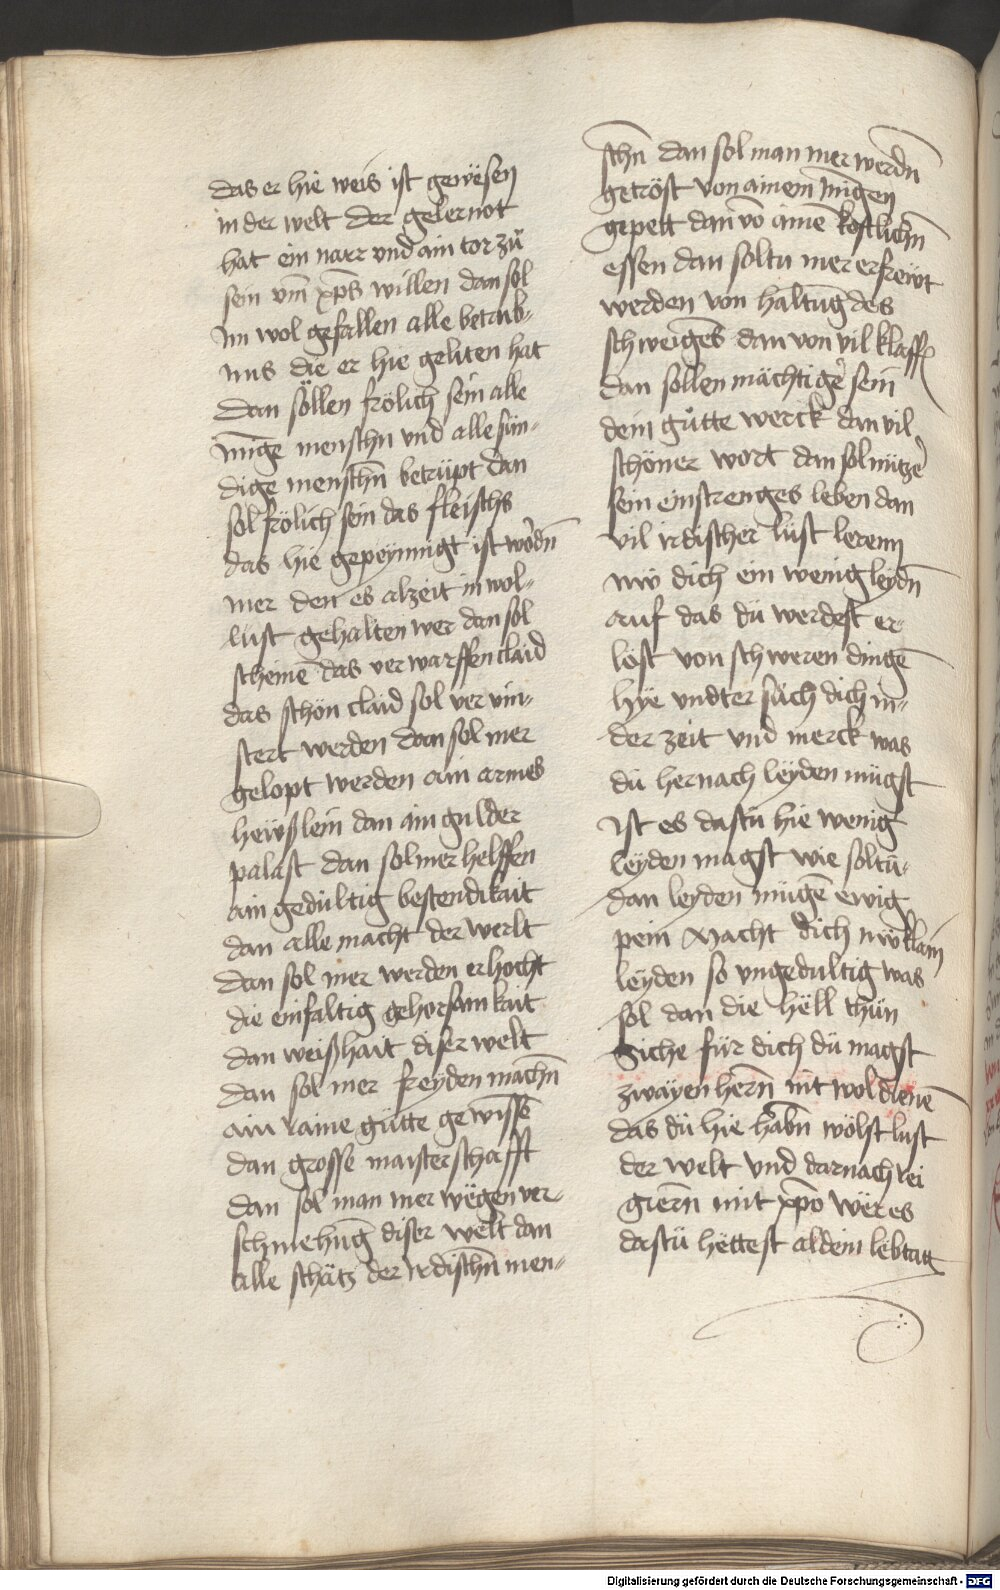 das er hie weis ist gewësen
in der welt der gelernot
hat ein narr vnd ain tor zů
sein vm̄ xp̄s willen dan sol
im wol gefallen alle betrub-
nus die er hie geliten hat
dan söllen frölich sein alle
Inn̄ige menschn vnd alle sün-
dige menschn̄ betrüpt dan
sol frölich sein das fleischs
das hie gepeynnigt ist wordn̄
mer den es alzeit in wol-
lust gehalten wer dan sol
scheinē das verwarffen claid
das schön claid sol ver vin-
stert werden dan sol mer
gelopt werden ain armes
heüßlein dan ain gulder
palast dan sol mer helffen
ain gedültig bestendikait
dan alle macht der werlt
dan sol mer werden erhocht
die einfaltig gehorsamkait
dan weißhait diser welt
dan sol mer freyden machn̄
ain raine gütte gewissē
dan grosse maisterschafft
dan sol man mer wëgen ver-
schmehūg diser welt dan
alle schätz der irdischn̄ men-
schn̄ dan sol man mer werdn̄
getröst von ainem In̄igen
gepett dan vō ainē kostlichn̄
essen dan soltu mer erfreüt
werden von haltūg des
schweigēs dan von vil klaffen
dan sollen mächtiger sein
dein gůtte werck dan vil
schöner wort dan sol nützer
sein ein strenges leben dan
vil irdischer lüst lerenn
nw dich ein wenig leydn̄
auf das dü werdest er-
löst von schweren dingē
hÿe vndter sůch dich in-
der zeit vnd merck was
dü hernach leyden mügst
ist es dastü hie wenig
leyden magst wie soltu-
dan leyden mügē ewig
pein Macht dich nw klain
leyden so vngedultig was
sol dan die hëll thün
Siche für dich dü magst
zwayen hern̄ nit wol dienē
das dü hie habn̄ wölst lust
der welt vnd darnach rei
giern̄ mit xp̄o wër es
dastü hëttest al dein lebtag
Digitalisierung gefördert durch die Deutsche Forschungsgemeinschaft - DFG